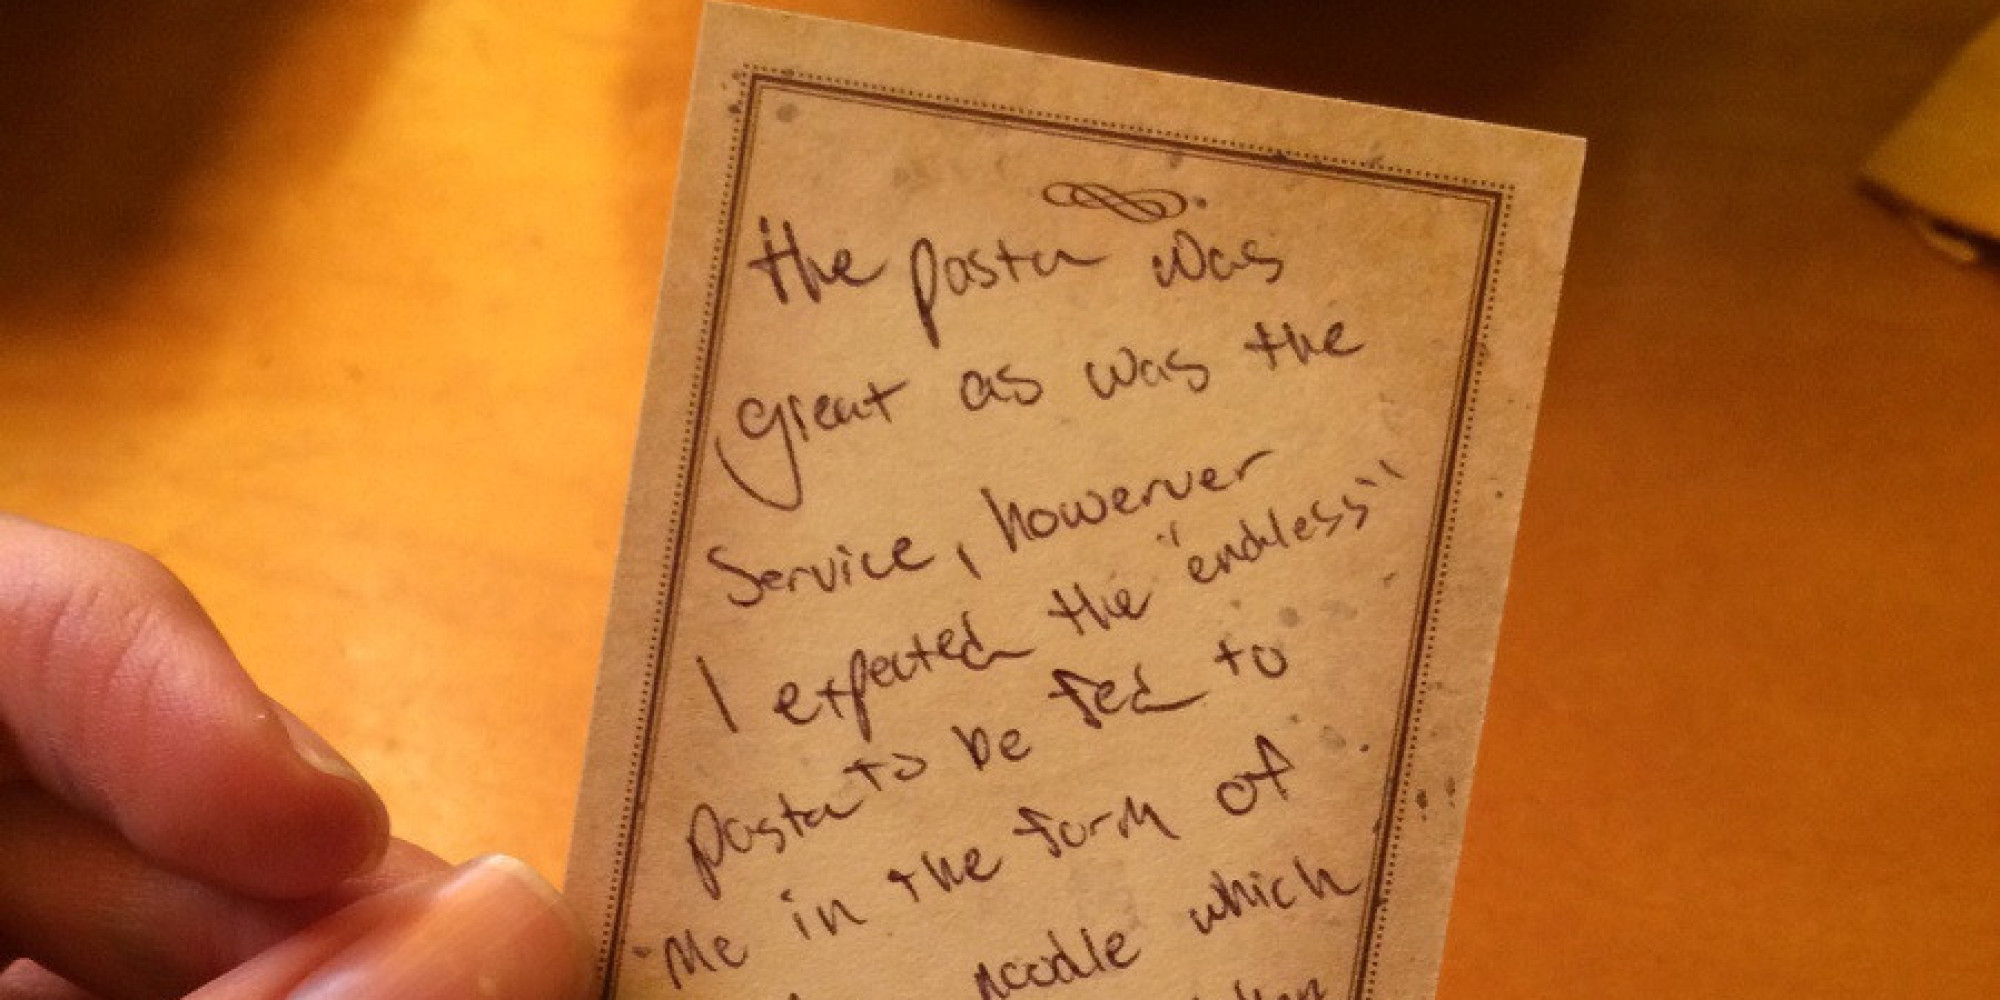 the pasta was
great as was the
Service, howerver
I expected the "endless"
pasta to be fed to
me in the form of
noodle which